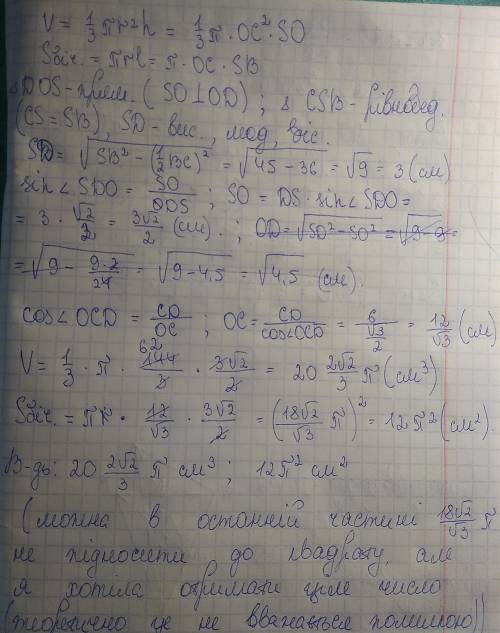 V = 1/3 πr²h = 1/3 π·OC²·SO
Sбіч. = πrl = π·OC·SB
△DOS-прям. (SO⊥OD) ; △ CSB-рівнобед.
(CS=SB), SD-вис., мед, біс.
SD = √(SB² - (1/2 BC)²) = √(45-36) = √9 = 3 (см)
sin∠SDO = SO/DS ; SO = DS·sin∠SDO =
= 3·√2/2 = 3√2/2 (см). ; OD = √(SD²-SO²) = √(9-9) =
= √(9 - 9·2/24) = √(9-4,5) = √4,5 (см).
cos∠OCD = CD/OC ; OC = CD/cos∠OCD = 6/(√3/2) = 12/√3 (см)
V = 1/3 · π · 144/3 · 3√2/2 = 20 2√2/3 π (см³)
Sбіч. = π · 12/√3 · 3√2/2 = (18√2/√3 π)² = 12π² (см²).
В-дь: 20 2√2/3 π см³ ; 12π² см²
(можна в останній частині 18√2/√3 π
не підносити до квадрату, але
я хотіла отримати ціле число
(теоретично це не вважається помилкою))